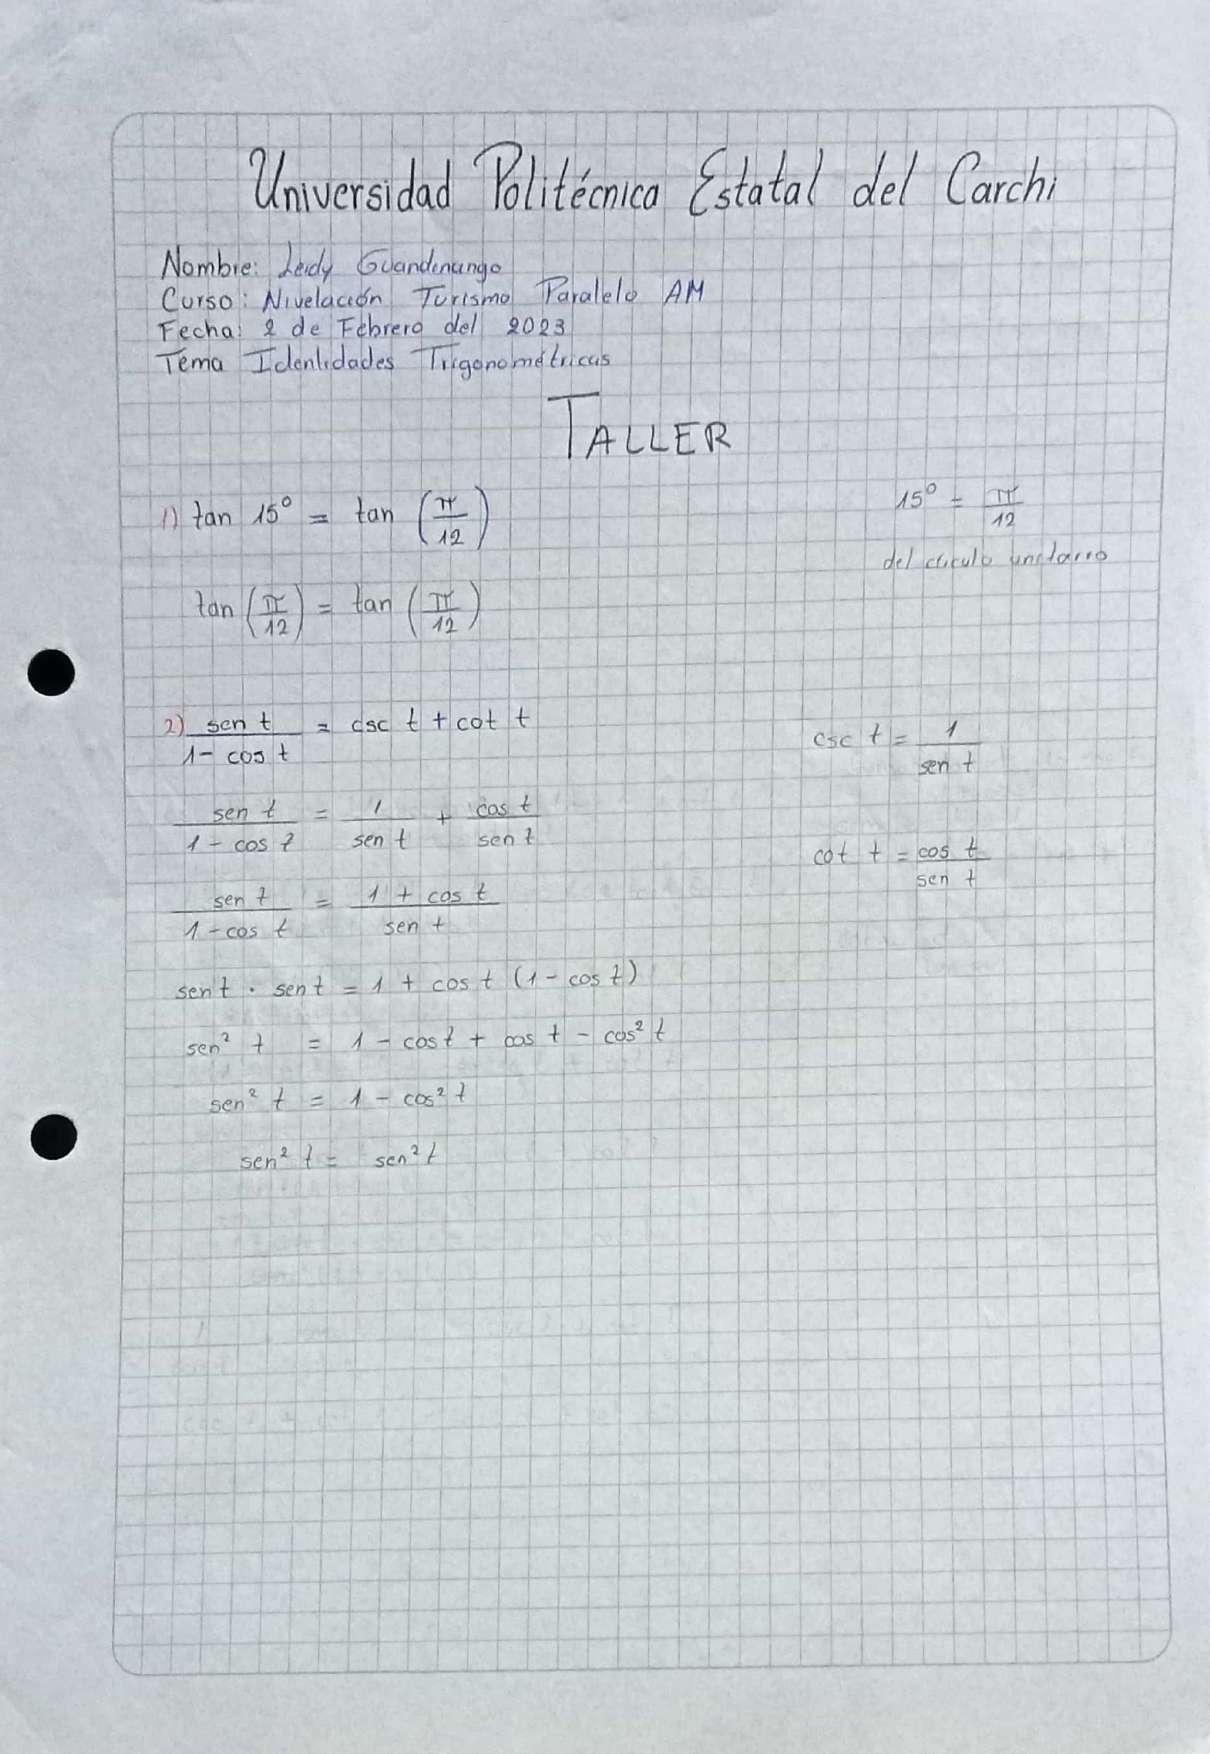 Universidad Politécnica Estatal del Carchi
Nombre: Leidy Guandinango
Curso: Nivelación Turismo Paralelo AM
Fecha: 2 de Febrero del 2023
Tema Identidades Trigonométricas
TALLER
1) tan 15° = tan (π/12)
15° = π/12
del círculo unitario
tan (π/12) = tan (π/12)
2) sen t / 1 - cos t = csc t + cot t
csc t = 1 / sen t
sen t / 1 - cos t = 1 / sen t + cos t / sen t
cot t = cos t / sen t
sen t / 1 - cos t = 1 + cos t / sen t
sen t · sen t = 1 + cos t (1 - cos t)
sen² t = 1 - cos t + cos t - cos² t
sen² t = 1 - cos² t
sen² t = sen² t